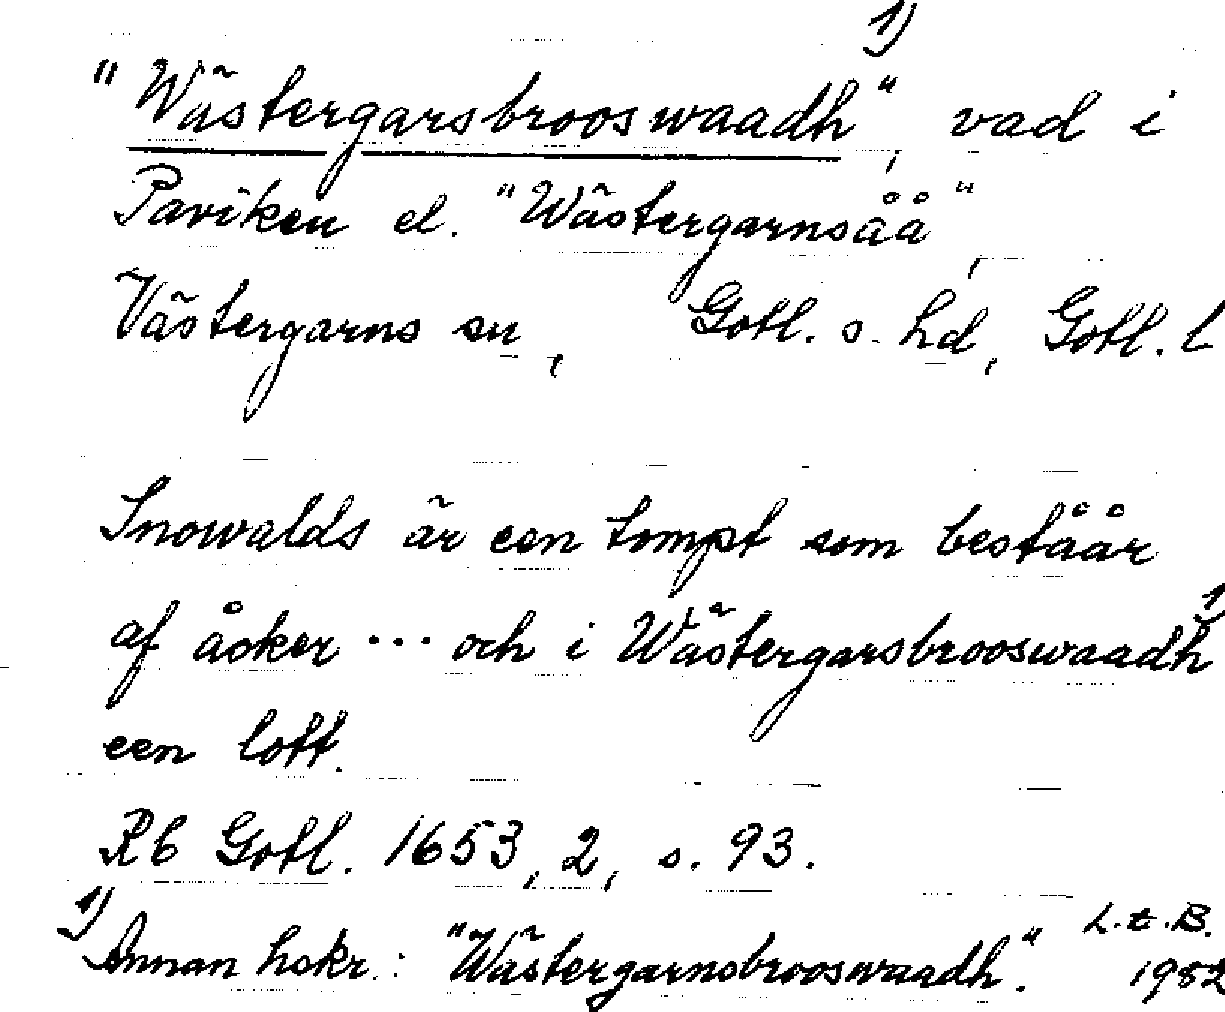 "Wästergarsbrooswaadh"¹⁾, vad i
Paviken el. "Wästergarnsåå",
Västergarns sn, Gotl. s. hd, Gotl. l
Snowalds är een tompt som beståår
af åcker ... och i Wästergarsbrooswaadh¹⁾
een lott.
Rb Gotl. 1653, 2, s. 93.
¹⁾ Annan hskr.: "Wästergarnsbrooswaadh".
L. t. B.
1982